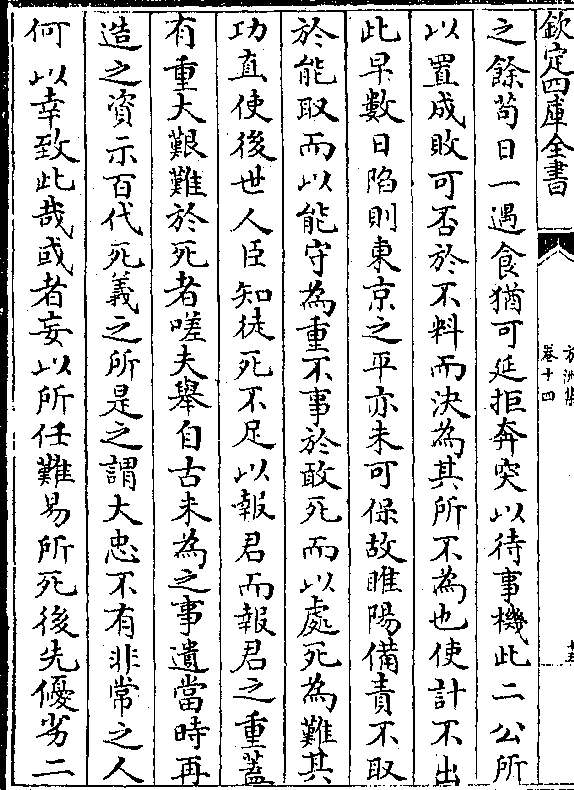 欽定四庫全書
方洲集
卷十四
十五
之餘苟日一遇食猶可延拒奔突以待事機此二公所
以置成敗可否於不料而決為其所不為也使計不出
此早數日陷則東京之平亦未可保故睢陽備責不取
於能取而以能守為重不事於敢死而以處死為難其
功直使後世人臣知徒死不足以報君而報君之重蓋
有重大艱難於死者嗟夫舉自古未為之事遺當時再
造之資示百代死義之所是之謂大忠不有非常之人
何以幸致此哉或者妄以所任難易所死後先優劣二